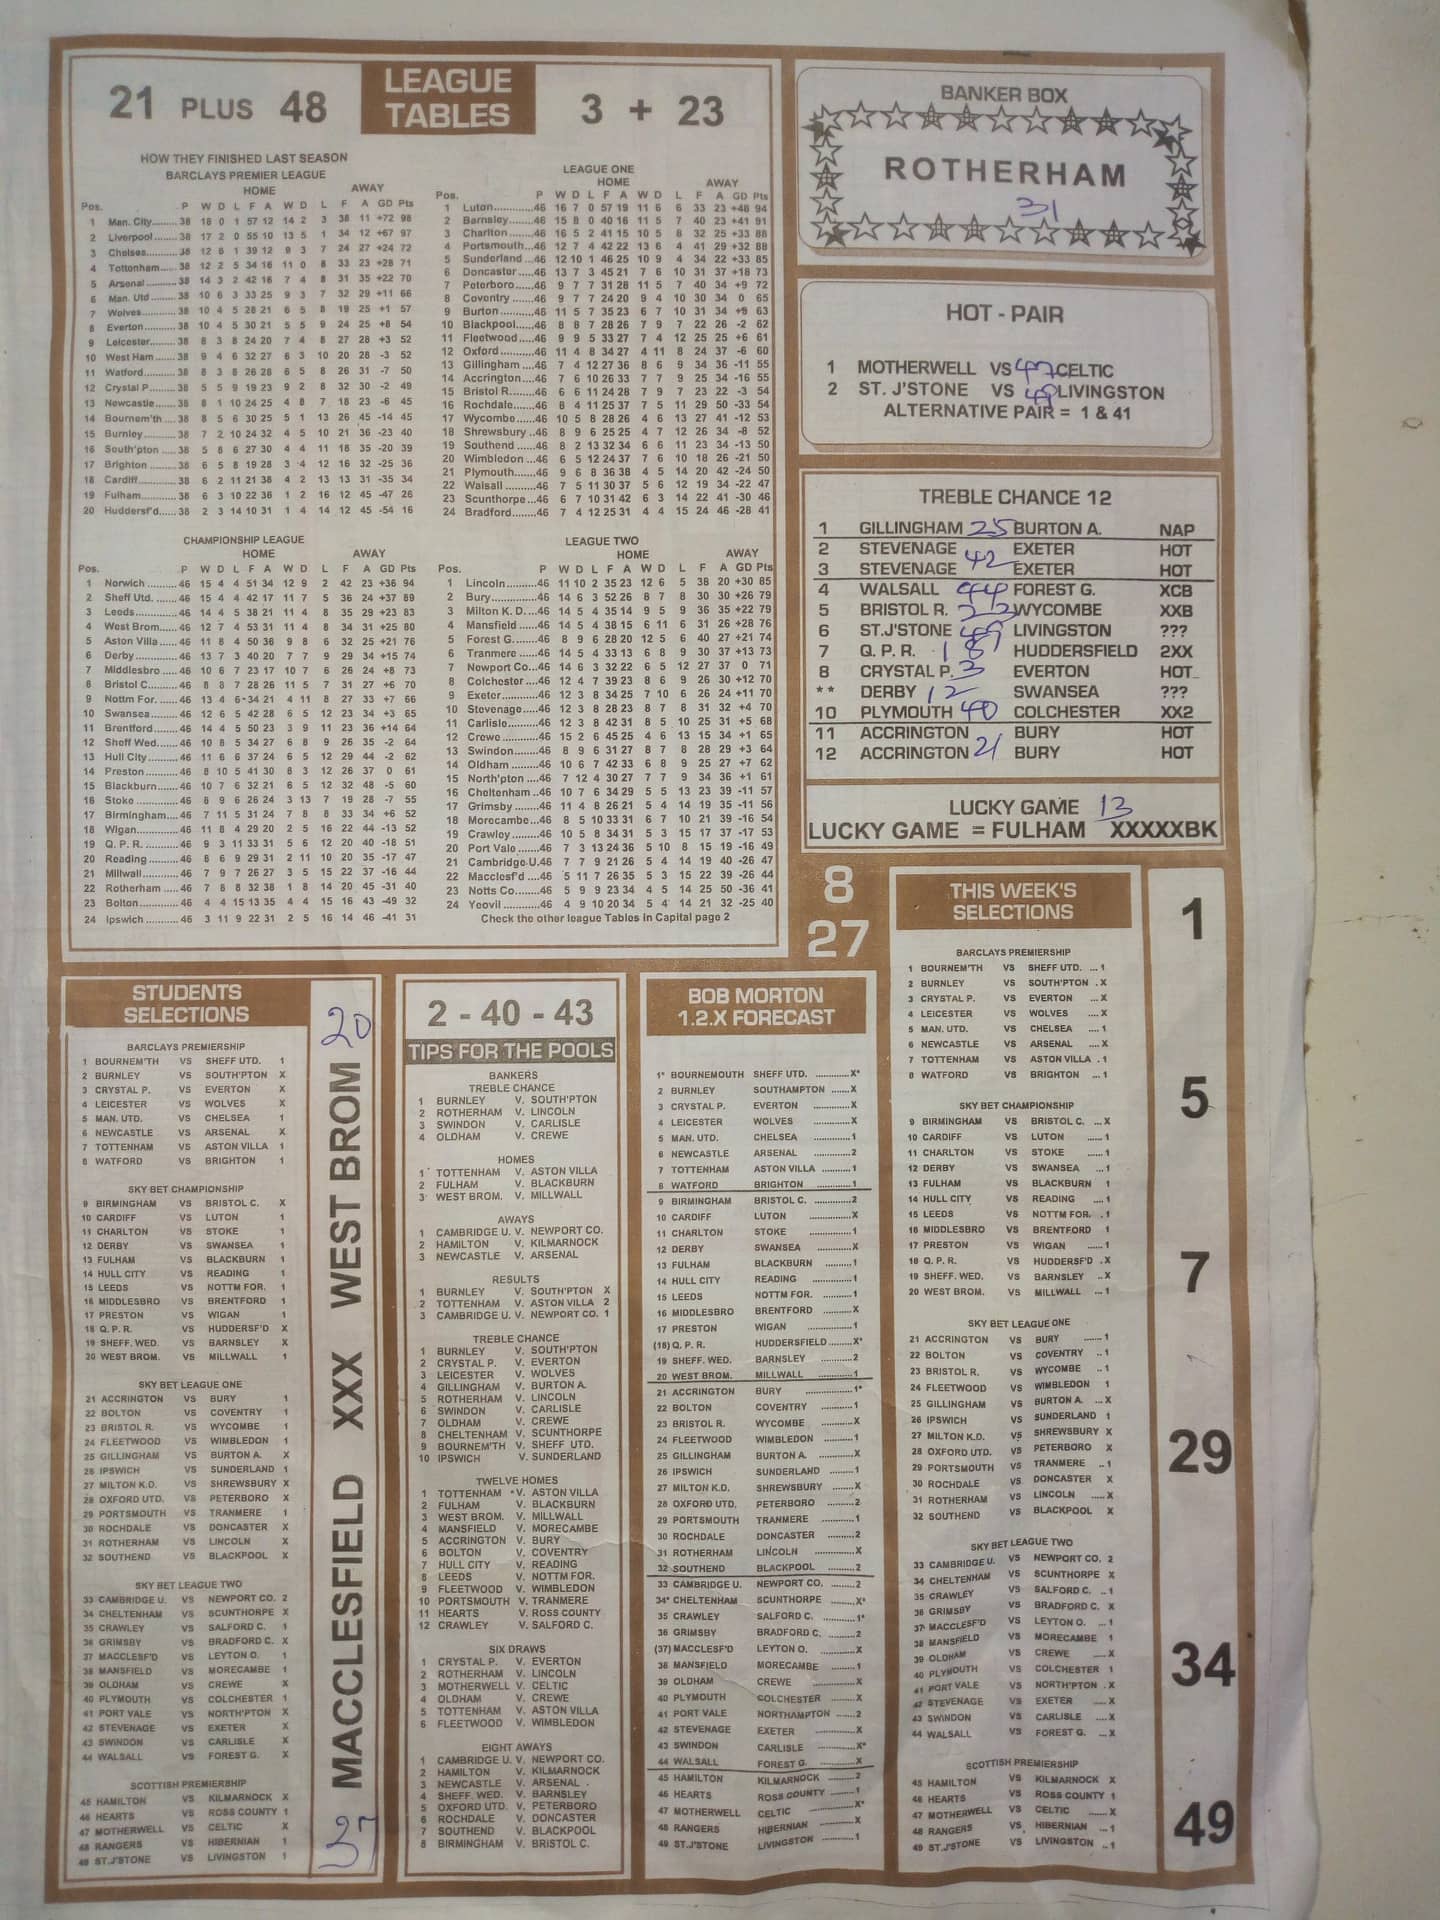 21 PLUS 48
LEAGUE TABLES
3 + 23
HOW THEY FINISHED LAST SEASON
BARCLAYS PREMIER LEAGUE
HOME AWAY
Pos. P W D L F A W D L F A GD Pts
1 Man. City 38 18 0 1 57 12 14 2 3 38 11 +72 98
2 Liverpool 38 17 2 0 55 10 13 5 1 34 12 +67 97
3 Chelsea 38 12 6 1 39 12 9 3 7 24 27 +24 72
4 Tottenham 38 12 2 5 34 16 11 0 8 33 23 +28 71
5 Arsenal 38 14 3 2 42 16 7 4 8 31 35 +22 70
6 Man. Utd 38 10 6 3 33 25 9 3 7 32 29 +11 66
7 Wolves 38 10 4 5 28 21 6 5 8 19 25 +1 57
8 Everton 38 10 4 5 30 21 5 5 9 24 25 +8 54
9 Leicester 38 8 3 8 24 20 7 4 8 27 28 +3 52
10 West Ham 38 9 4 6 32 27 6 3 10 20 28 -3 52
11 Watford 38 8 3 8 26 28 6 5 8 26 31 -7 50
12 Crystal P 38 5 5 9 19 23 9 2 8 32 30 -2 49
13 Newcastle 38 8 1 10 24 25 4 8 7 18 23 -6 45
14 Bournem'th 38 8 5 6 30 25 5 1 13 26 45 -14 45
15 Burnley 38 7 2 10 24 32 4 5 10 21 36 -23 40
16 South'pton 38 5 8 6 27 30 4 4 11 18 35 -20 39
17 Brighton 38 6 5 8 19 28 3 4 12 16 32 -25 36
18 Cardiff 38 6 2 11 21 38 4 2 13 13 31 -35 34
19 Fulham 38 6 3 10 22 36 1 2 16 12 45 -47 26
20 Huddersf'd 38 2 3 14 10 31 1 4 14 12 45 -54 16
LEAGUE ONE
HOME AWAY
Pos. P W D L F A W D L F A GD Pts
1 Luton 46 16 7 0 57 19 11 6 6 33 23 +48 94
2 Barnsley 46 15 8 0 40 16 11 5 7 40 23 +41 91
3 Charlton 46 16 5 2 41 15 10 5 8 32 25 +33 88
4 Portsmouth 46 12 7 4 42 22 13 6 4 41 29 +32 88
5 Sunderland 46 12 10 1 46 25 10 9 4 34 22 +33 85
6 Doncaster 46 13 7 3 45 21 7 6 10 31 37 +18 73
7 Peterboro 46 9 7 7 31 28 11 5 7 40 34 +9 72
8 Coventry 46 9 7 7 24 20 9 4 10 30 34 0 65
9 Burton 46 11 5 7 35 23 6 7 10 31 34 +9 63
10 Blackpool 46 8 8 7 28 26 7 9 7 22 26 -2 62
11 Fleetwood 46 9 9 5 33 27 7 4 12 25 25 +6 61
12 Oxford 46 11 4 8 34 27 4 11 8 24 37 -6 60
13 Gillingham 46 7 4 12 27 36 8 6 9 34 36 -11 55
14 Accrington 46 7 6 10 26 33 7 7 9 25 34 -16 55
15 Bristol R 46 6 6 11 24 28 7 9 7 23 22 -3 54
16 Rochdale 46 8 4 11 25 37 7 5 11 29 50 -33 54
17 Wycombe 46 10 5 8 28 26 4 6 13 27 41 -12 53
18 Shrewsbury 46 8 9 6 25 25 4 7 12 26 34 -8 52
19 Southend 46 8 2 13 32 34 6 6 11 23 34 -13 50
20 Wimbledon 46 6 5 12 24 37 7 6 10 18 26 -21 50
21 Plymouth 46 9 6 8 36 38 4 5 14 20 42 -24 50
22 Walsall 46 7 5 11 30 37 5 6 12 19 34 -22 47
23 Scunthorpe 46 6 7 10 31 42 6 3 14 22 41 -30 46
24 Bradford 46 7 4 12 25 31 4 4 15 24 46 -28 41
CHAMPIONSHIP LEAGUE
HOME AWAY
Pos. P W D L F A W D L F A GD Pts
1 Norwich 46 15 4 4 51 34 12 9 2 42 23 +36 94
2 Sheff Utd. 46 15 4 4 42 17 11 7 5 36 24 +37 89
3 Leeds 46 14 4 5 38 21 11 4 8 35 29 +23 83
4 West Brom 46 12 7 4 53 31 11 4 8 34 31 +25 80
5 Aston Villa 46 11 8 4 50 36 9 8 6 32 25 +21 76
6 Derby 46 13 7 3 40 20 7 7 9 29 34 +15 74
7 Middlesbro 46 10 6 7 23 17 10 7 6 26 24 +8 73
8 Bristol C 46 8 8 7 28 26 11 5 7 31 27 +6 70
9 Nottm For. 46 13 4 6 34 21 4 11 8 27 33 +7 66
10 Swansea 46 12 6 5 42 28 6 5 12 23 34 +3 65
11 Brentford 46 14 4 5 50 23 3 9 11 23 36 +14 64
12 Sheff Wed 46 10 8 5 34 27 6 8 9 26 35 -2 64
13 Hull City 46 11 6 6 37 24 6 5 12 29 44 -2 62
14 Preston 46 8 10 5 41 30 8 3 12 26 37 0 61
15 Blackburn 46 10 7 6 32 21 6 5 12 32 48 -5 60
16 Stoke 46 8 9 6 26 24 3 13 7 19 28 -7 55
17 Birmingham 46 7 11 5 31 24 7 8 8 33 34 +6 52
18 Wigan 46 11 8 4 29 20 2 5 16 22 44 -13 52
19 Q. P. R. 46 9 3 11 33 31 5 6 12 20 40 -18 51
20 Reading 46 8 6 9 29 31 2 11 10 20 35 -17 47
21 Millwall 46 7 9 7 26 27 3 5 15 22 37 -16 44
22 Rotherham 46 7 8 8 32 38 1 8 14 20 45 -31 40
23 Bolton 46 4 4 15 13 35 4 4 15 16 43 -49 32
24 Ipswich 46 3 11 9 22 31 2 5 16 14 46 -41 31
LEAGUE TWO
HOME AWAY
Pos. P W D L F A W D L F A GD Pts
1 Lincoln 46 11 10 2 35 23 12 6 5 38 20 +30 85
2 Bury 46 14 6 3 52 26 8 7 8 30 30 +26 79
3 Milton K. D. 46 14 5 4 35 14 9 5 9 36 35 +22 79
4 Mansfield 46 14 5 4 38 15 6 11 6 31 26 +28 76
5 Forest G. 46 8 9 6 28 20 12 5 6 40 27 +21 74
6 Tranmere 46 14 5 4 33 13 6 8 9 30 37 +13 73
7 Newport Co 46 14 6 3 32 22 6 5 12 27 37 0 71
8 Colchester 46 12 4 7 39 23 8 6 9 26 30 +12 70
9 Exeter 46 12 3 8 34 25 7 10 6 26 24 +11 70
10 Stevenage 46 12 3 8 28 23 8 7 8 31 32 +4 70
11 Carlisle 46 12 3 8 42 31 8 5 10 25 31 +5 68
12 Crewe 46 15 2 6 45 25 4 6 13 15 34 +1 65
13 Swindon 46 8 9 6 31 27 8 7 8 28 29 +3 64
14 Oldham 46 10 6 7 42 33 6 8 9 25 27 +7 62
15 North'pton 46 7 12 4 30 27 7 7 9 34 36 +1 61
16 Cheltenham 46 10 7 6 34 29 5 5 13 23 39 -11 57
17 Grimsby 46 11 4 8 26 21 5 4 14 19 35 -11 56
18 Morecambe 46 8 5 10 33 31 6 7 10 21 39 -16 54
19 Crawley 46 10 5 8 34 31 5 3 15 17 37 -17 53
20 Port Vale 46 7 3 13 24 36 5 10 8 15 19 -16 49
21 Cambridge U. 46 7 7 9 21 26 5 4 14 19 40 -26 47
22 Macclesf'd 46 5 11 7 26 35 5 3 15 22 39 -26 44
23 Notts Co 46 5 9 9 23 34 4 5 14 25 50 -36 41
24 Yeovil 46 4 9 10 20 34 5 4 14 21 32 -25 40
Check the other league Tables in Capital page 2
BANKER BOX
ROTHERHAM
31
HOT - PAIR
1 MOTHERWELL VS 47 CELTIC
2 ST. J'STONE VS 49 LIVINGSTON
ALTERNATIVE PAIR = 1 & 41
TREBLE CHANCE 12
1 GILLINGHAM 25 BURTON A. NAP
2 STEVENAGE 42 EXETER HOT
3 STEVENAGE EXETER HOT
4 WALSALL 44 FOREST G. XCB
5 BRISTOL R. 23 WYCOMBE XXB
6 ST.J'STONE 49 LIVINGSTON ???
7 Q. P. R. 18 HUDDERSFIELD 2XX
8 CRYSTAL P. 3 EVERTON HOT
** DERBY 12 SWANSEA ???
10 PLYMOUTH 40 COLCHESTER XX2
11 ACCRINGTON BURY HOT
12 ACCRINGTON 21 BURY HOT
LUCKY GAME 13
LUCKY GAME = FULHAM XXXXXBK
8
27
STUDENTS SELECTIONS
BARCLAYS PREMIERSHIP
1 BOURNEM'TH VS SHEFF UTD. 1
2 BURNLEY VS SOUTH'PTON X
3 CRYSTAL P. VS EVERTON X
4 LEICESTER VS WOLVES X
5 MAN. UTD. VS CHELSEA 1
6 NEWCASTLE VS ARSENAL X
7 TOTTENHAM VS ASTON VILLA 1
8 WATFORD VS BRIGHTON 1
SKY BET CHAMPIONSHIP
9 BIRMINGHAM VS BRISTOL C. X
10 CARDIFF VS LUTON 1
11 CHARLTON VS STOKE 1
12 DERBY VS SWANSEA 1
13 FULHAM VS BLACKBURN 1
14 HULL CITY VS READING 1
15 LEEDS VS NOTTM FOR. 1
16 MIDDLESBRO VS BRENTFORD 1
17 PRESTON VS WIGAN 1
18 Q. P. R. VS HUDDERSF'D X
19 SHEFF. WED. VS BARNSLEY X
20 WEST BROM. VS MILLWALL 1
SKY BET LEAGUE ONE
21 ACCRINGTON VS BURY 1
22 BOLTON VS COVENTRY 1
23 BRISTOL R. VS WYCOMBE 1
24 FLEETWOOD VS WIMBLEDON 1
25 GILLINGHAM VS BURTON A. X
26 IPSWICH VS SUNDERLAND 1
27 MILTON K.D. VS SHREWSBURY X
28 OXFORD UTD. VS PETERBORO X
29 PORTSMOUTH VS TRANMERE 1
30 ROCHDALE VS DONCASTER X
31 ROTHERHAM VS LINCOLN X
32 SOUTHEND VS BLACKPOOL X
SKY BET LEAGUE TWO
33 CAMBRIDGE U. VS NEWPORT CO. 2
34 CHELTENHAM VS SCUNTHORPE X
35 CRAWLEY VS SALFORD C. 1
36 GRIMSBY VS BRADFORD C. X
37 MACCLESF'D VS LEYTON O. 1
38 MANSFIELD VS MORECAMBE 1
39 OLDHAM VS CREWE X
40 PLYMOUTH VS COLCHESTER 1
41 PORT VALE VS NORTH'PTON X
42 STEVENAGE VS EXETER X
43 SWINDON VS CARLISLE X
44 WALSALL VS FOREST G. X
SCOTTISH PREMIERSHIP
45 HAMILTON VS KILMARNOCK X
46 HEARTS VS ROSS COUNTY 1
47 MOTHERWELL VS CELTIC X
48 RANGERS VS HIBERNIAN 1
49 ST.J'STONE VS LIVINGSTON 1
20
MACCLESFIELD XXX WEST BROM
37
2 - 40 - 43
TIPS FOR THE POOLS
BANKERS
TREBLE CHANCE
1 BURNLEY V. SOUTH'PTON
2 ROTHERHAM V. LINCOLN
3 SWINDON V. CARLISLE
4 OLDHAM V. CREWE
HOMES
1 TOTTENHAM V. ASTON VILLA
2 FULHAM V. BLACKBURN
3 WEST BROM. V. MILLWALL
AWAYS
1 CAMBRIDGE U. V. NEWPORT CO.
2 HAMILTON V. KILMARNOCK
3 NEWCASTLE V. ARSENAL
RESULTS
1 BURNLEY V. SOUTH'PTON X
2 TOTTENHAM V. ASTON VILLA 2
3 CAMBRIDGE U. V. NEWPORT CO. 1
TREBLE CHANCE
1 BURNLEY V. SOUTH'PTON
2 CRYSTAL P. V. EVERTON
3 LEICESTER V. WOLVES
4 GILLINGHAM V. BURTON A.
5 ROTHERHAM V. LINCOLN
6 SWINDON V. CARLISLE
7 OLDHAM V. CREWE
8 CHELTENHAM V. SCUNTHORPE
9 BOURNEM'TH V. SHEFF UTD.
10 IPSWICH V. SUNDERLAND
TWELVE HOMES
1 TOTTENHAM V. ASTON VILLA
2 FULHAM V. BLACKBURN
3 WEST BROM. V. MILLWALL
4 MANSFIELD V. MORECAMBE
5 ACCRINGTON V. BURY
6 BOLTON V. COVENTRY
7 HULL CITY V. READING
8 LEEDS V. NOTTM FOR.
9 FLEETWOOD V. WIMBLEDON
10 PORTSMOUTH V. TRANMERE
11 HEARTS V. ROSS COUNTY
12 CRAWLEY V. SALFORD C.
SIX DRAWS
1 CRYSTAL P. V. EVERTON
2 ROTHERHAM V. LINCOLN
3 MOTHERWELL V. CELTIC
4 OLDHAM V. CREWE
5 TOTTENHAM V. ASTON VILLA
6 FLEETWOOD V. WIMBLEDON
EIGHT AWAYS
1 CAMBRIDGE U. V. NEWPORT CO.
2 HAMILTON V. KILMARNOCK
3 NEWCASTLE V. ARSENAL
4 SHEFF. WED. V. BARNSLEY
5 OXFORD UTD. V. PETERBORO
6 ROCHDALE V. DONCASTER
7 SOUTHEND V. BLACKPOOL
8 BIRMINGHAM V. BRISTOL C.
BOB MORTON
1.2.X FORECAST
1* BOURNEMOUTH SHEFF UTD. X*
2 BURNLEY SOUTHAMPTON X
3 CRYSTAL P. EVERTON X
4 LEICESTER WOLVES X
5 MAN. UTD. CHELSEA 1
6 NEWCASTLE ARSENAL 2
7 TOTTENHAM ASTON VILLA 1
8 WATFORD BRIGHTON 1
9 BIRMINGHAM BRISTOL C. 2
10 CARDIFF LUTON X
11 CHARLTON STOKE 1
12 DERBY SWANSEA X
13 FULHAM BLACKBURN 1
14 HULL CITY READING 1
15 LEEDS NOTTM FOR. 1
16 MIDDLESBRO BRENTFORD X
17 PRESTON WIGAN 1
(18) Q. P. R. HUDDERSFIELD X*
19 SHEFF. WED. BARNSLEY 2
20 WEST BROM. MILLWALL 1
21 ACCRINGTON BURY 1*
22 BOLTON COVENTRY 1
23 BRISTOL R. WYCOMBE X
24 FLEETWOOD WIMBLEDON 1
25 GILLINGHAM BURTON A. X
26 IPSWICH SUNDERLAND 1
27 MILTON K.D. SHREWSBURY X
28 OXFORD UTD. PETERBORO 2
29 PORTSMOUTH TRANMERE 1
30 ROCHDALE DONCASTER 2
31 ROTHERHAM LINCOLN X
32 SOUTHEND BLACKPOOL 2
33 CAMBRIDGE U. NEWPORT CO. 2
34* CHELTENHAM SCUNTHORPE X*
35 CRAWLEY SALFORD C. 1*
36 GRIMSBY BRADFORD C. 2
(37) MACCLESF'D LEYTON O. X
38 MANSFIELD MORECAMBE 1
39 OLDHAM CREWE X
40 PLYMOUTH COLCHESTER X
41 PORT VALE NORTHAMPTON 2
42 STEVENAGE EXETER X
43 SWINDON CARLISLE X*
44 WALSALL FOREST G. X
45 HAMILTON KILMARNOCK 2
46 HEARTS ROSS COUNTY 1
47 MOTHERWELL CELTIC X*
48 RANGERS HIBERNIAN X
49 ST.J'STONE LIVINGSTON 1
THIS WEEK'S SELECTIONS
BARCLAYS PREMIERSHIP
1 BOURNEM'TH VS SHEFF UTD. 1
2 BURNLEY VS SOUTH'PTON X
3 CRYSTAL P. VS EVERTON X
4 LEICESTER VS WOLVES X
5 MAN. UTD. VS CHELSEA 1
6 NEWCASTLE VS ARSENAL X
7 TOTTENHAM VS ASTON VILLA 1
8 WATFORD VS BRIGHTON 1
SKY BET CHAMPIONSHIP
9 BIRMINGHAM VS BRISTOL C. X
10 CARDIFF VS LUTON 1
11 CHARLTON VS STOKE 1
12 DERBY VS SWANSEA 1
13 FULHAM VS BLACKBURN 1
14 HULL CITY VS READING 1
15 LEEDS VS NOTTM FOR. 1
16 MIDDLESBRO VS BRENTFORD 1
17 PRESTON VS WIGAN 1
18 Q. P. R. VS HUDDERSF'D X
19 SHEFF. WED. VS BARNSLEY X
20 WEST BROM. VS MILLWALL 1
SKY BET LEAGUE ONE
21 ACCRINGTON VS BURY 1
22 BOLTON VS COVENTRY 1
23 BRISTOL R. VS WYCOMBE 1
24 FLEETWOOD VS WIMBLEDON 1
25 GILLINGHAM VS BURTON A. X
26 IPSWICH VS SUNDERLAND 1
27 MILTON K.D. VS SHREWSBURY X
28 OXFORD UTD. VS PETERBORO X
29 PORTSMOUTH VS TRANMERE 1
30 ROCHDALE VS DONCASTER X
31 ROTHERHAM VS LINCOLN X
32 SOUTHEND VS BLACKPOOL X
SKY BET LEAGUE TWO
33 CAMBRIDGE U. VS NEWPORT CO. 2
34 CHELTENHAM VS SCUNTHORPE X
35 CRAWLEY VS SALFORD C. 1
36 GRIMSBY VS BRADFORD C. X
37 MACCLESF'D VS LEYTON O. 1
38 MANSFIELD VS MORECAMBE 1
39 OLDHAM VS CREWE X
40 PLYMOUTH VS COLCHESTER 1
41 PORT VALE VS NORTH'PTON X
42 STEVENAGE VS EXETER X
43 SWINDON VS CARLISLE X
44 WALSALL VS FOREST G. X
SCOTTISH PREMIERSHIP
45 HAMILTON VS KILMARNOCK X
46 HEARTS VS ROSS COUNTY 1
47 MOTHERWELL VS CELTIC X
48 RANGERS VS HIBERNIAN 1
49 ST.J'STONE VS LIVINGSTON 1
1
5
7
29
34
49